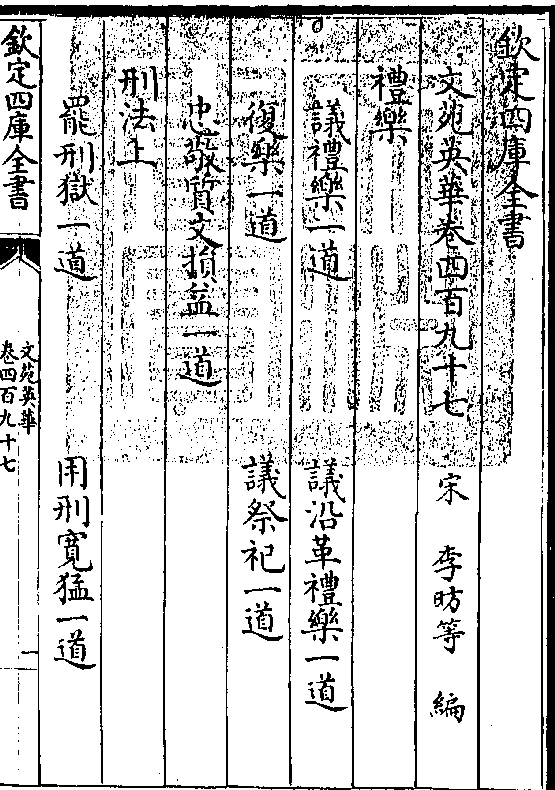 欽定四庫全書
文苑英華卷四百九十七 宋 李昉等 編
禮樂
議禮樂一道 議沿革禮樂一道
復樂一道 議祭祀一道
忠敬質文損益一道
刑法上
罷刑獄一道 用刑寛猛一道
欽定四庫全書
文苑英華
卷四百九十七
一